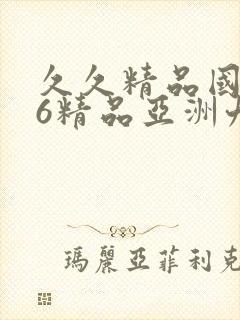 久久精品國
6精品亞洲
瑪麗亞菲利克